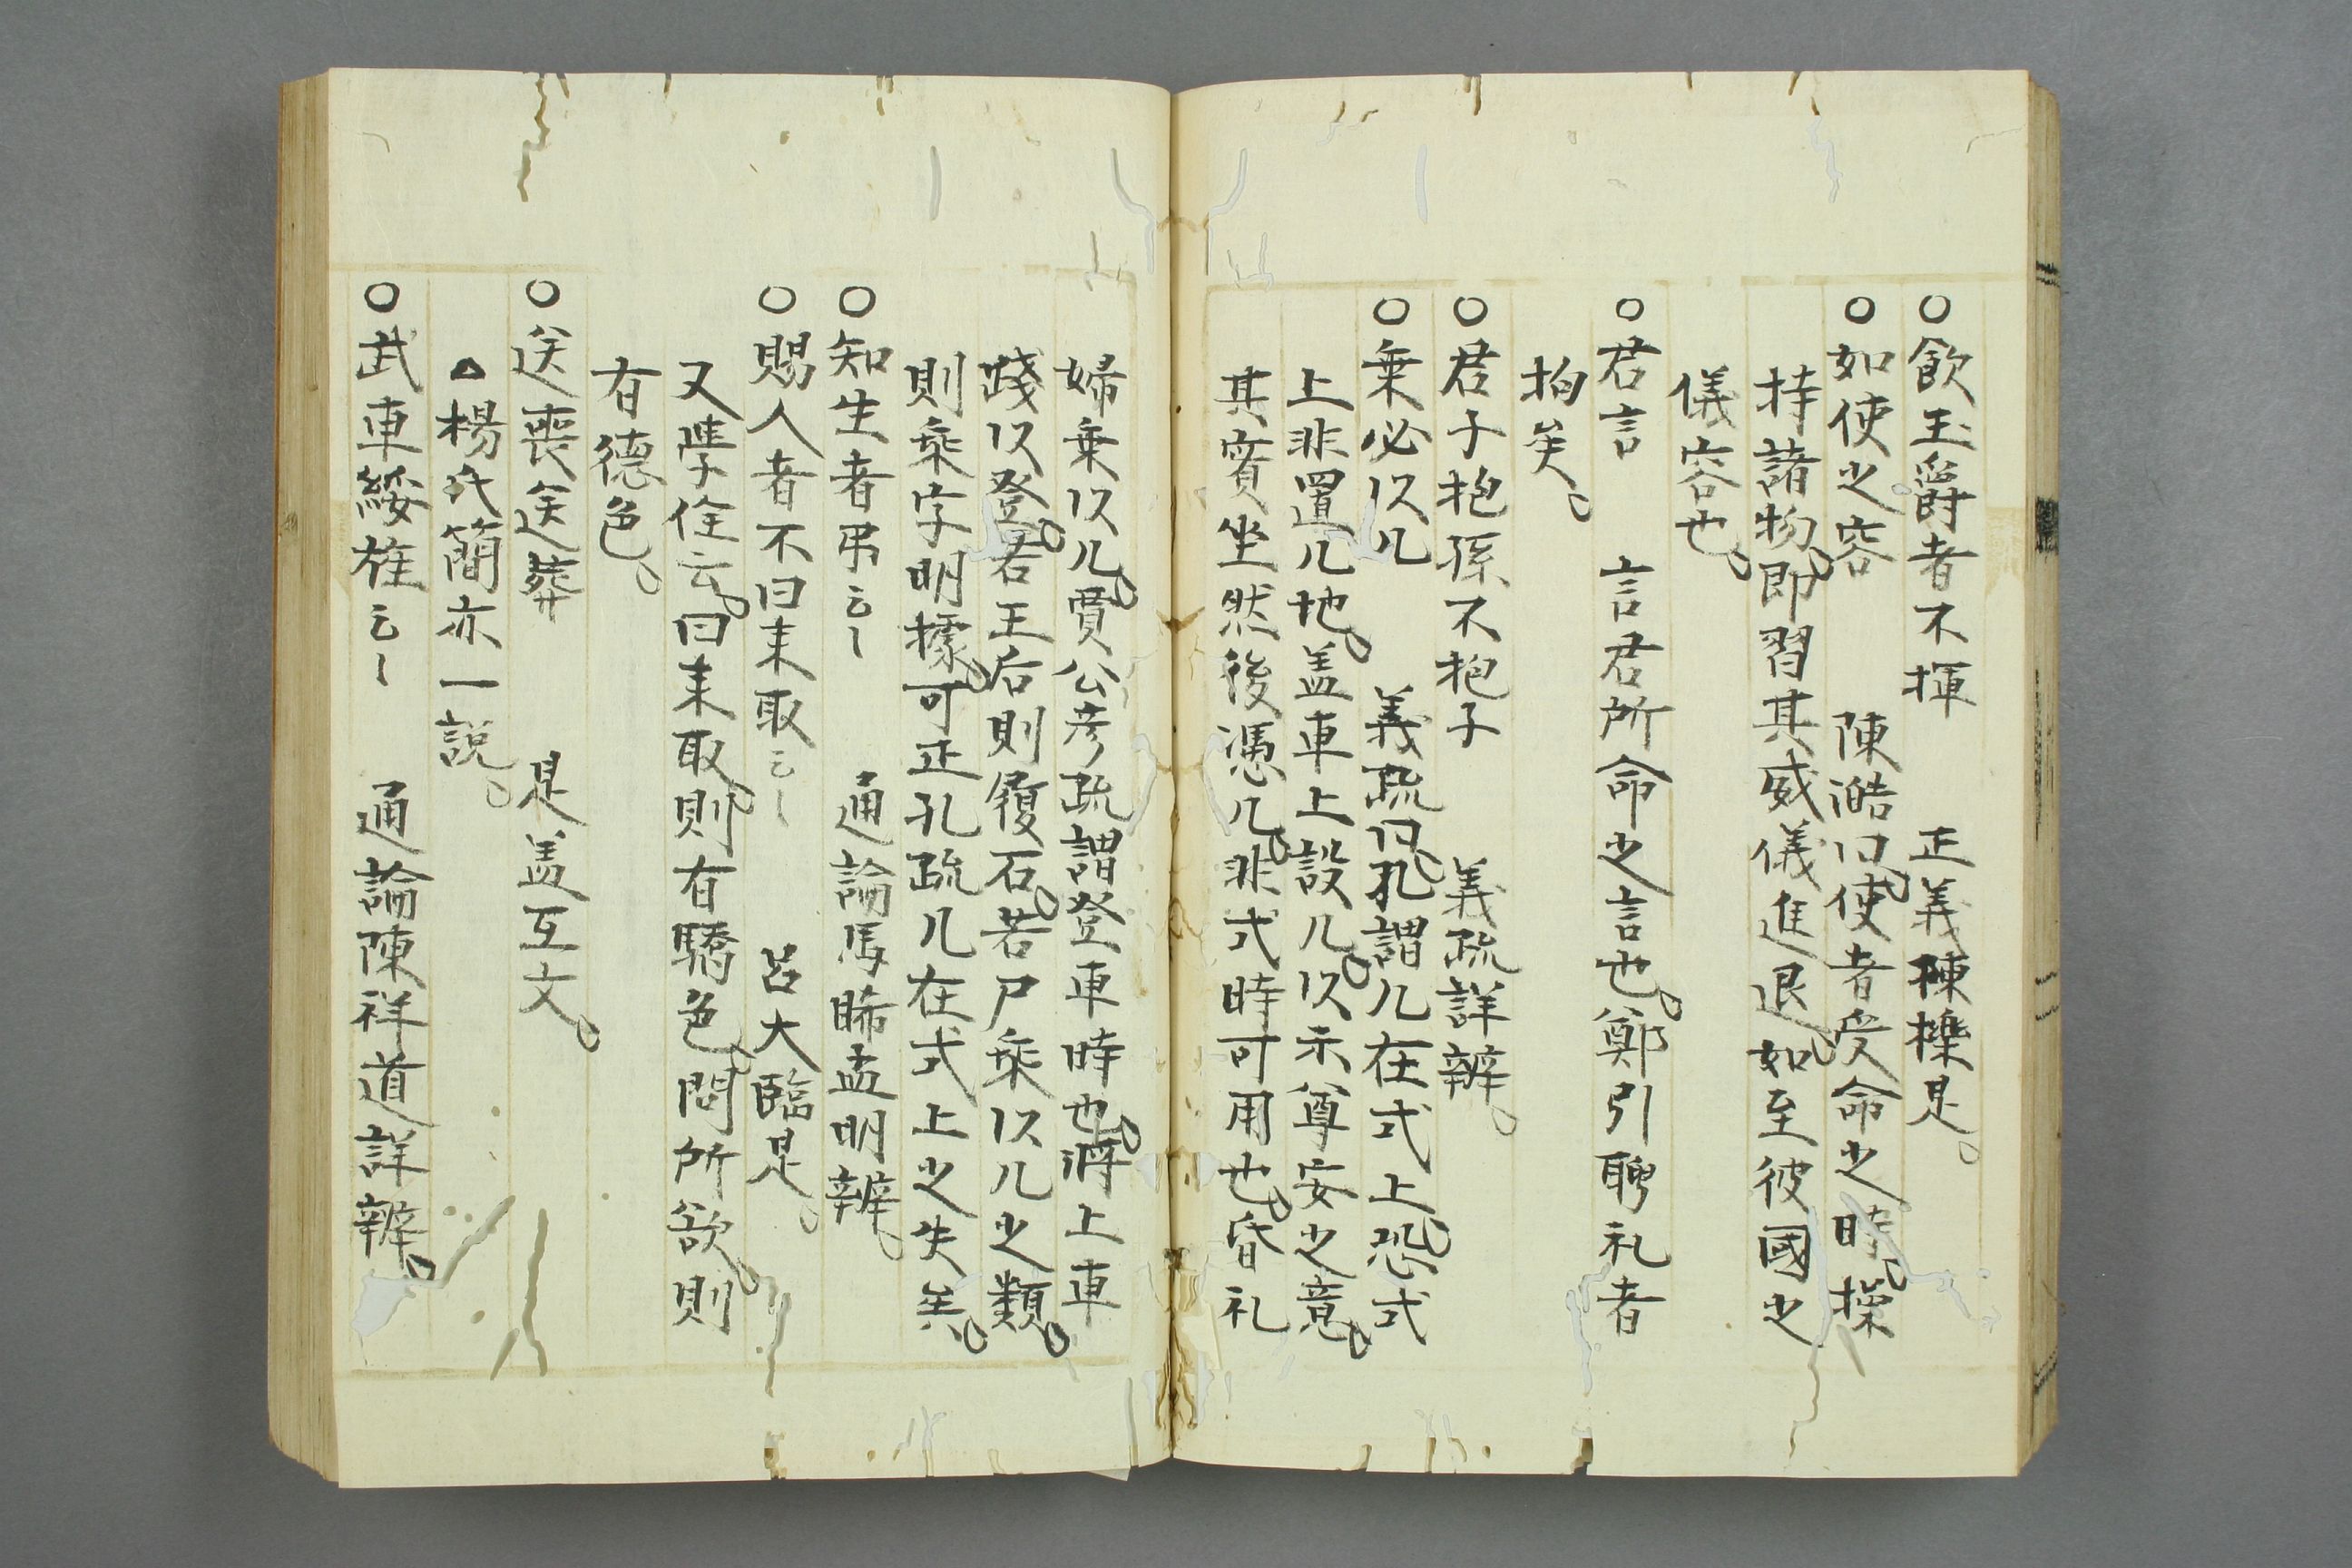 ○飲玉爵者不揮　正義陳櫟是。
○如使之容　陳澔曰使者受命之時。操
持諸物。即習其威儀進退。如至彼國之
儀容也。
○君言　言君所命之言也。鄭引聘礼者
拘矣。
○君子抱孫不抱子　義疏詳辨。
○乗必以几　義疏曰。孔謂几在式上。恐式
上非置几地。盖車上設几。以示尊安之意。
其實坐然後憑几。非式時可用也。昏礼
婦乗以几。賈公彦疏謂登車時也。洒上車
踐以登。若王后則履石。若尸乗以几之類。
則乗字明據。可正孔疏几在式上之失矣。
○知生者弔云〻　通論馬晞孟明辨。
○賜人者不曰来取云〻　呂大臨是。
又陸佃云。曰来取。則有驕色。問所欲。則
有德色。
○送喪送葬　是盖互文。
△楊氏簡亦一説。
○武車綏旌云〻　通論陳祥道詳辨。